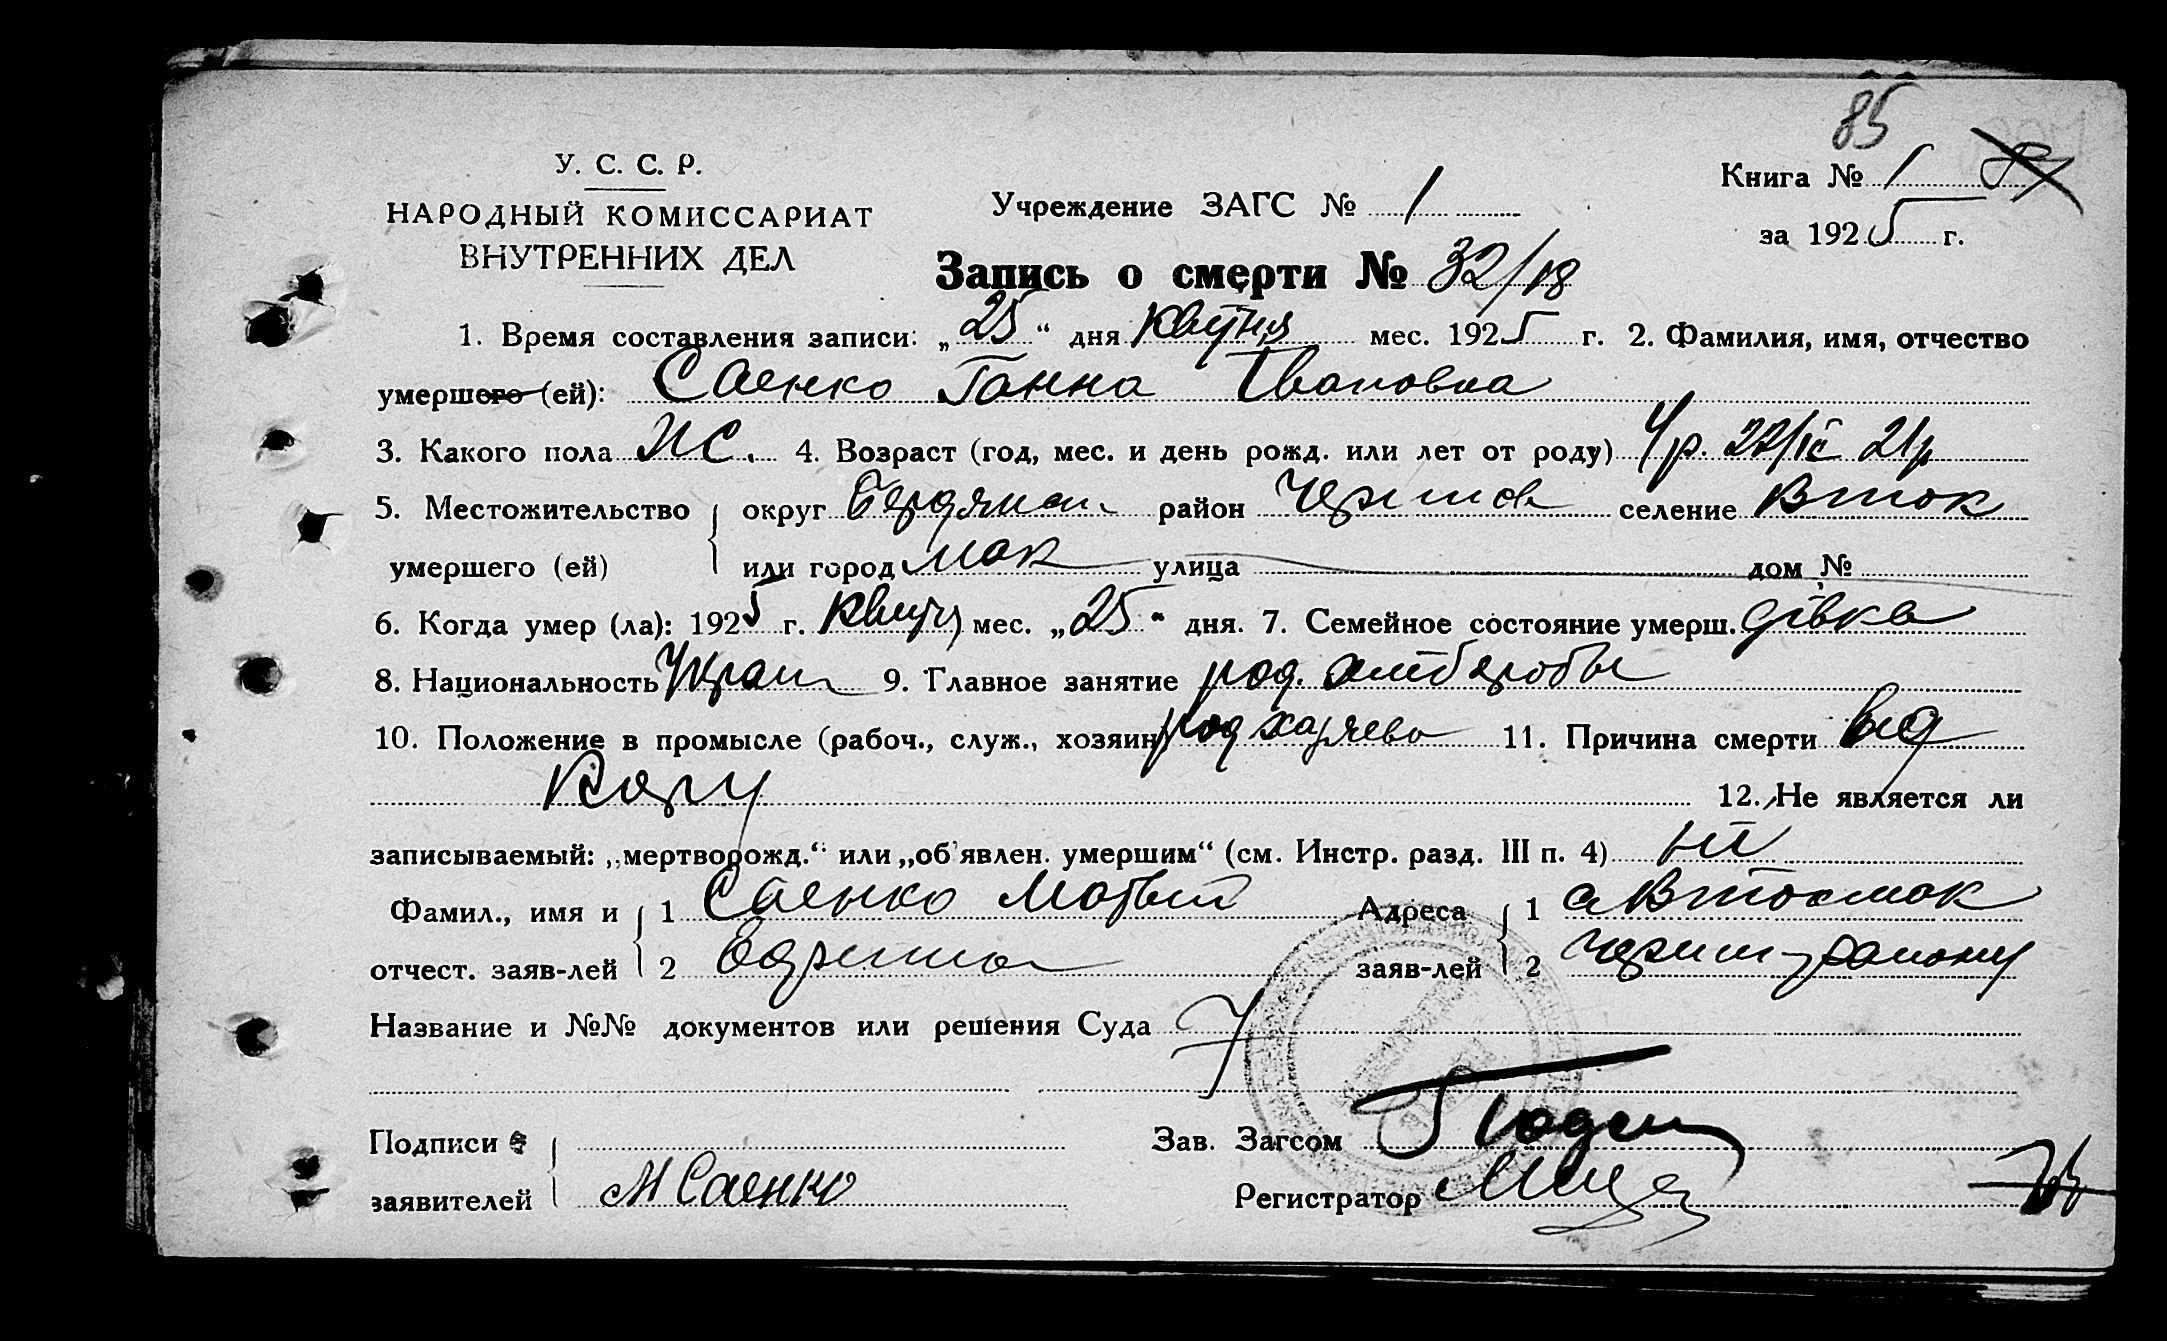 85
У. С. С. Р.
НАРОДНЫЙ КОМИССАРИАТ
ВНУТРЕННИХ ДЕЛ
Учреждение ЗАГС № 1
Книга № 1
за 1925 г.
Запись о смерти № 32/18
1. Время составления записи: „25“ дня квітня мес. 1925 г. 2. Фамилия, имя, отчество
умершего (ей): Саенко Ганна Івановна
3. Какого пола Ж. 4. Возраст (год, мес. и день рожд. или лет от роду) 4р.
5. Местожительство округ Бердянськ район Черниг селение Вток
умершего (ей) или город мак улица дом №
6. Когда умер (ла): 1925 г. квітня мес. „25“ дня. 7. Семейное состояние умерш. дівка
8. Национальность Украин 9. Главное занятие род. хліборобы
10. Положение в промысле (рабоч., служ., хозяин) род 11. Причина смерти від
Кору
12. Не является ли
записываемый: „мертворожд.“ или „об'явлен. умершим“ (см. Инстр. разд. III п. 4) ні
Фамил., имя и 1 Саенко Матвій Адреса 1 с Втокмак
отчест. заяв-лей 2 заяв-лей 2 Черниг району
Название и №№ документов или решения Суда
Подписи Зав. Загсом
заявителей М Саенко Регистратор